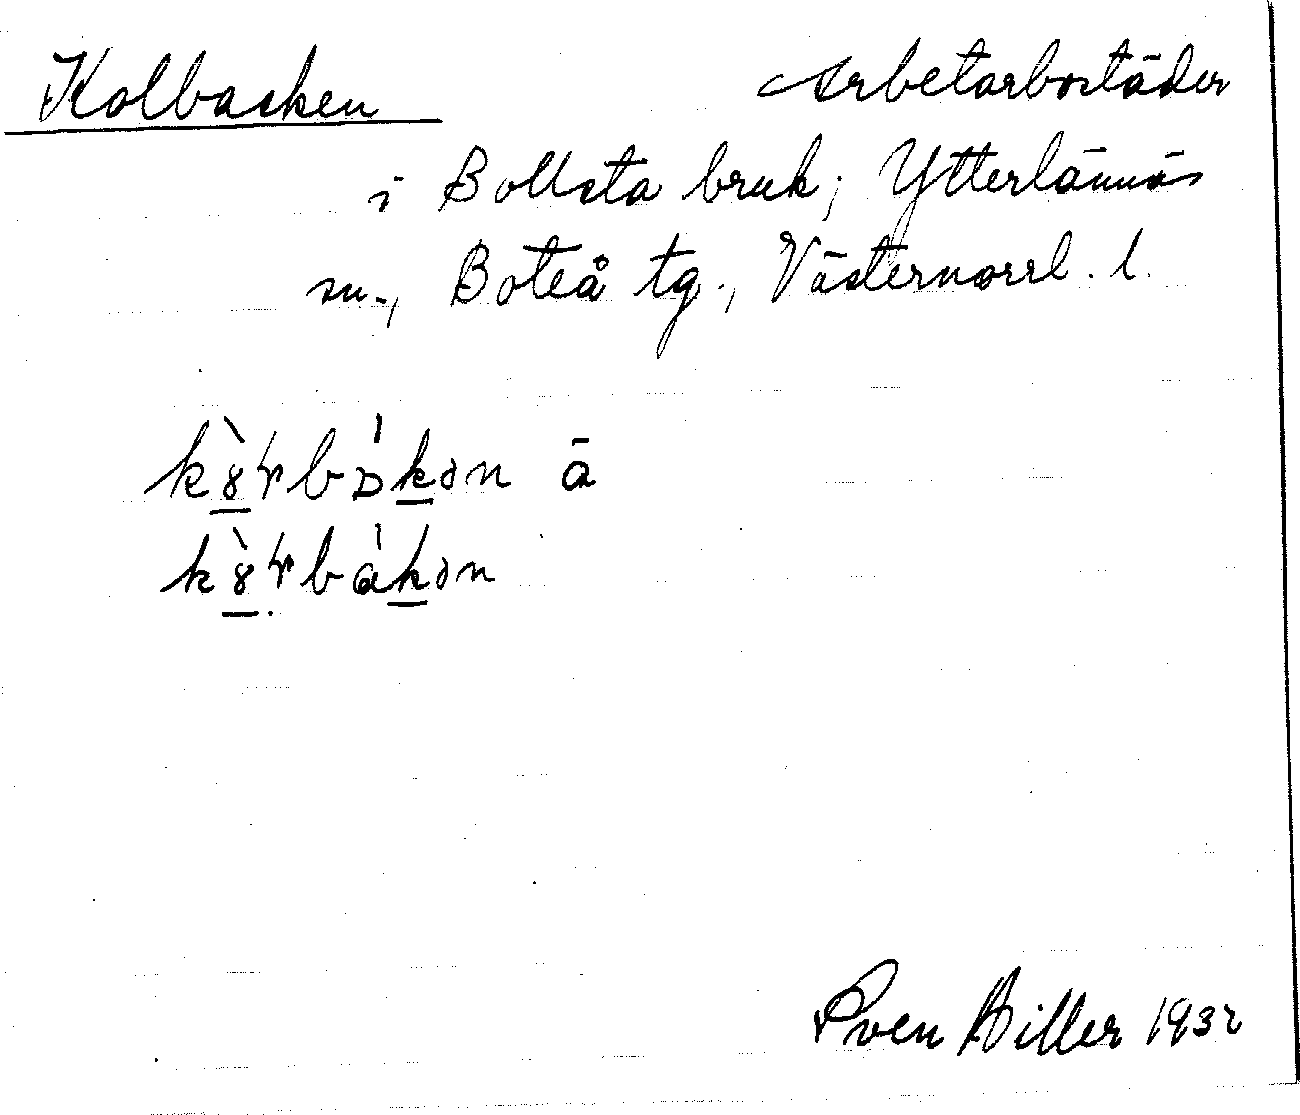 Kolbacken Arbetarbostäder
i Bollsta bruk; Ytterlännäs
sn., Boteå tg., Västernorrl. l.
ā
Sven Hiller 1932